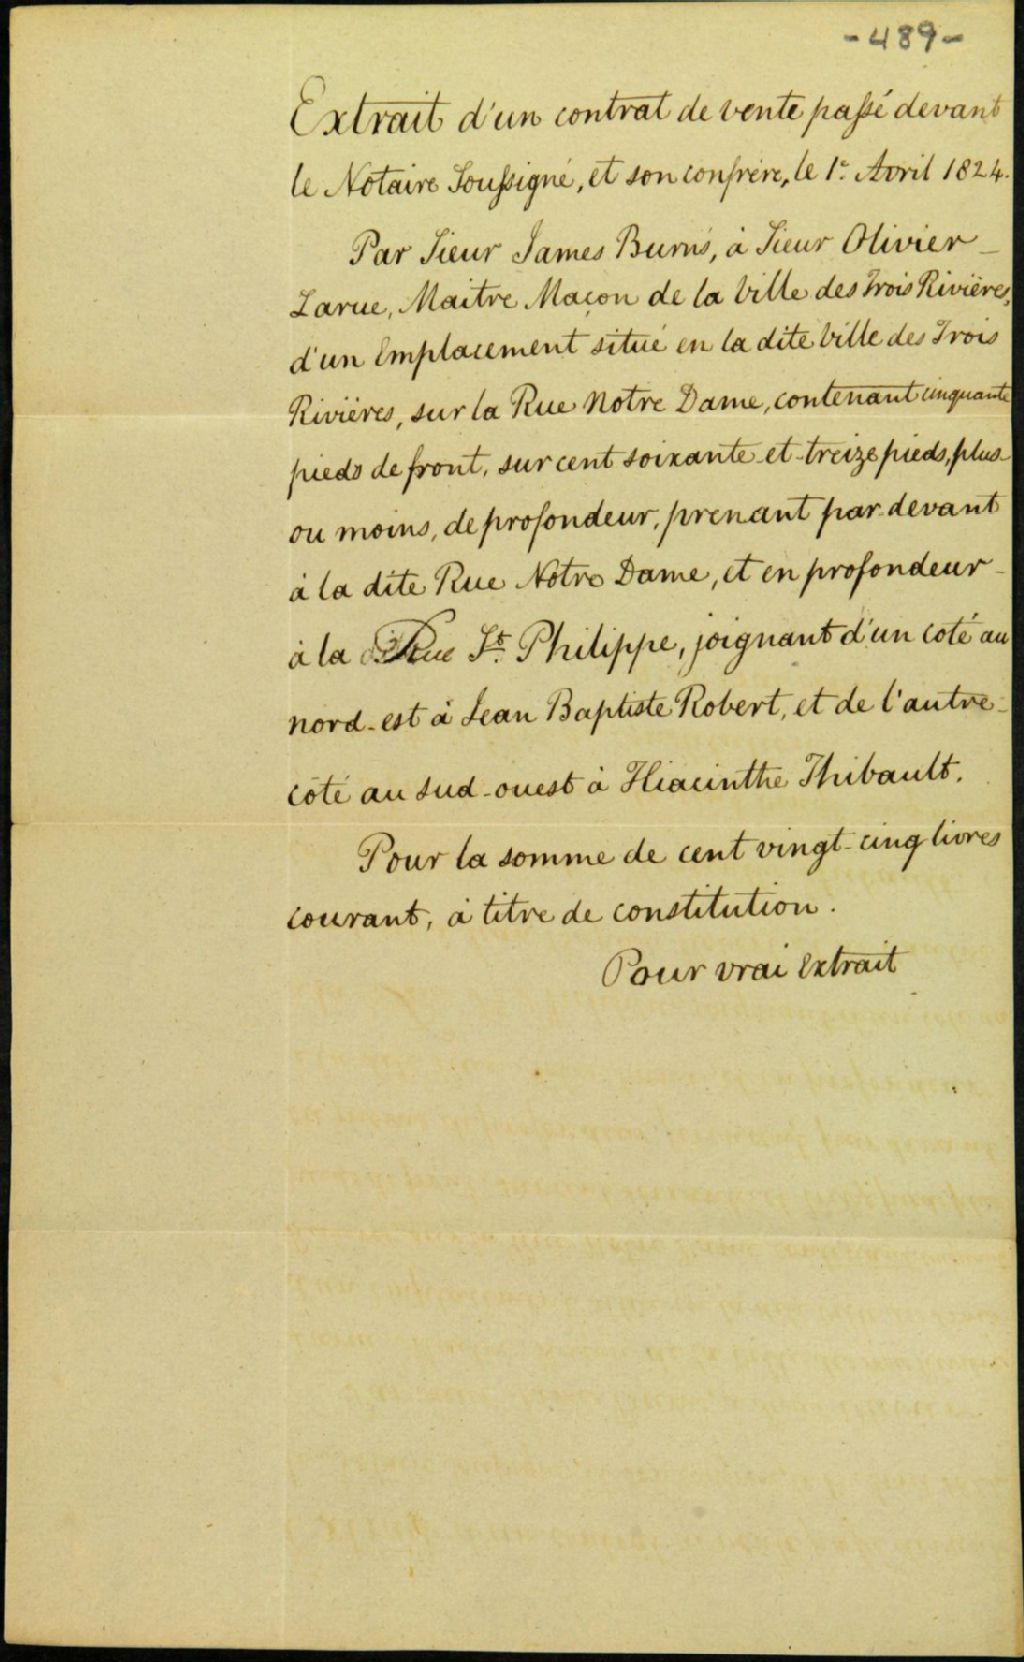 -489-
Extrait d'un contrat de vente passé devant
le Notaire Soussigné, et son confrère, le 1er Avril 1824.
Par Sieur James Burns, à Sieur Olivier
Larue, Maitre Maçon de la Ville des Trois Rivières,
d'un Emplacement situé en la dite Ville des Trois
Rivières, sur la Rue Notre Dame, contenant cinquante
pieds de front, sur cent soixante-et-treize pieds, plus
ou moins, de profondeur, prenant par-devant
à la dite Rue Notre Dame, et en profondeur
à la Rue St. Philippe, joignant d'un coté au
nord-est à Jean Baptiste Robert, et de l'autre
coté au sud-ouest à Hiacinthe Thibault.
Pour la somme de cent vingt-cinq livres
courant, à titre de constitution.
Pour vrai Extrait